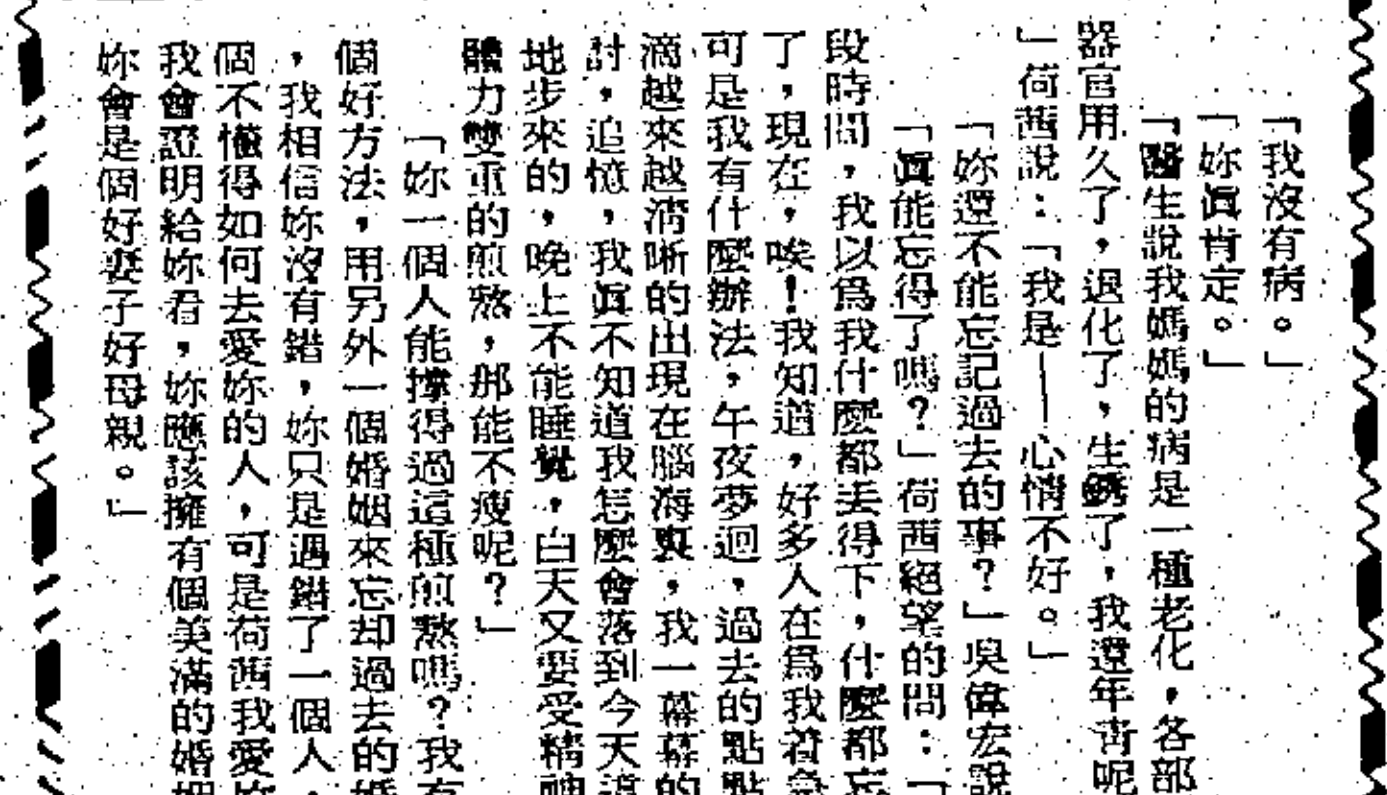 「我沒有病。」
「妳眞肯定。」
「醫生說我媽媽的病是一種老化，各部
器官用久了，退化了，生銹了，我還年靑呢
」荷茜說：「我是——心情不好。」
「妳還不能忘記過去的事？」吳偉宏說
「眞能忘得了嗎？」荷茜絕望的問：「
段時間，我以爲我什麼都丟得下，什麼都忘
了，現在，唉！我知道，好多人在爲我着急
可是我有什麼辦法，午夜夢迴，過去的點點
滴越來越淸晰的出現在腦海裏，我一幕幕的
討，追憶，我眞不知道我怎麼會落到今天這
地步來的，晚上不能睡覺，白天又要受精神
體力雙重的煎熬，那能不瘦呢？」
「妳一個人能撐得過這種煎熬嗎？我有
個好方法，用另外一個婚姻來忘却過去的婚
，我相信妳沒有錯，妳只是遇錯了一個人，
個不懂得如何去愛妳的人，可是荷茜我愛妳
我會證明給妳看，妳應該擁有個美滿的婚姻
妳會是個好妻子好母親。」